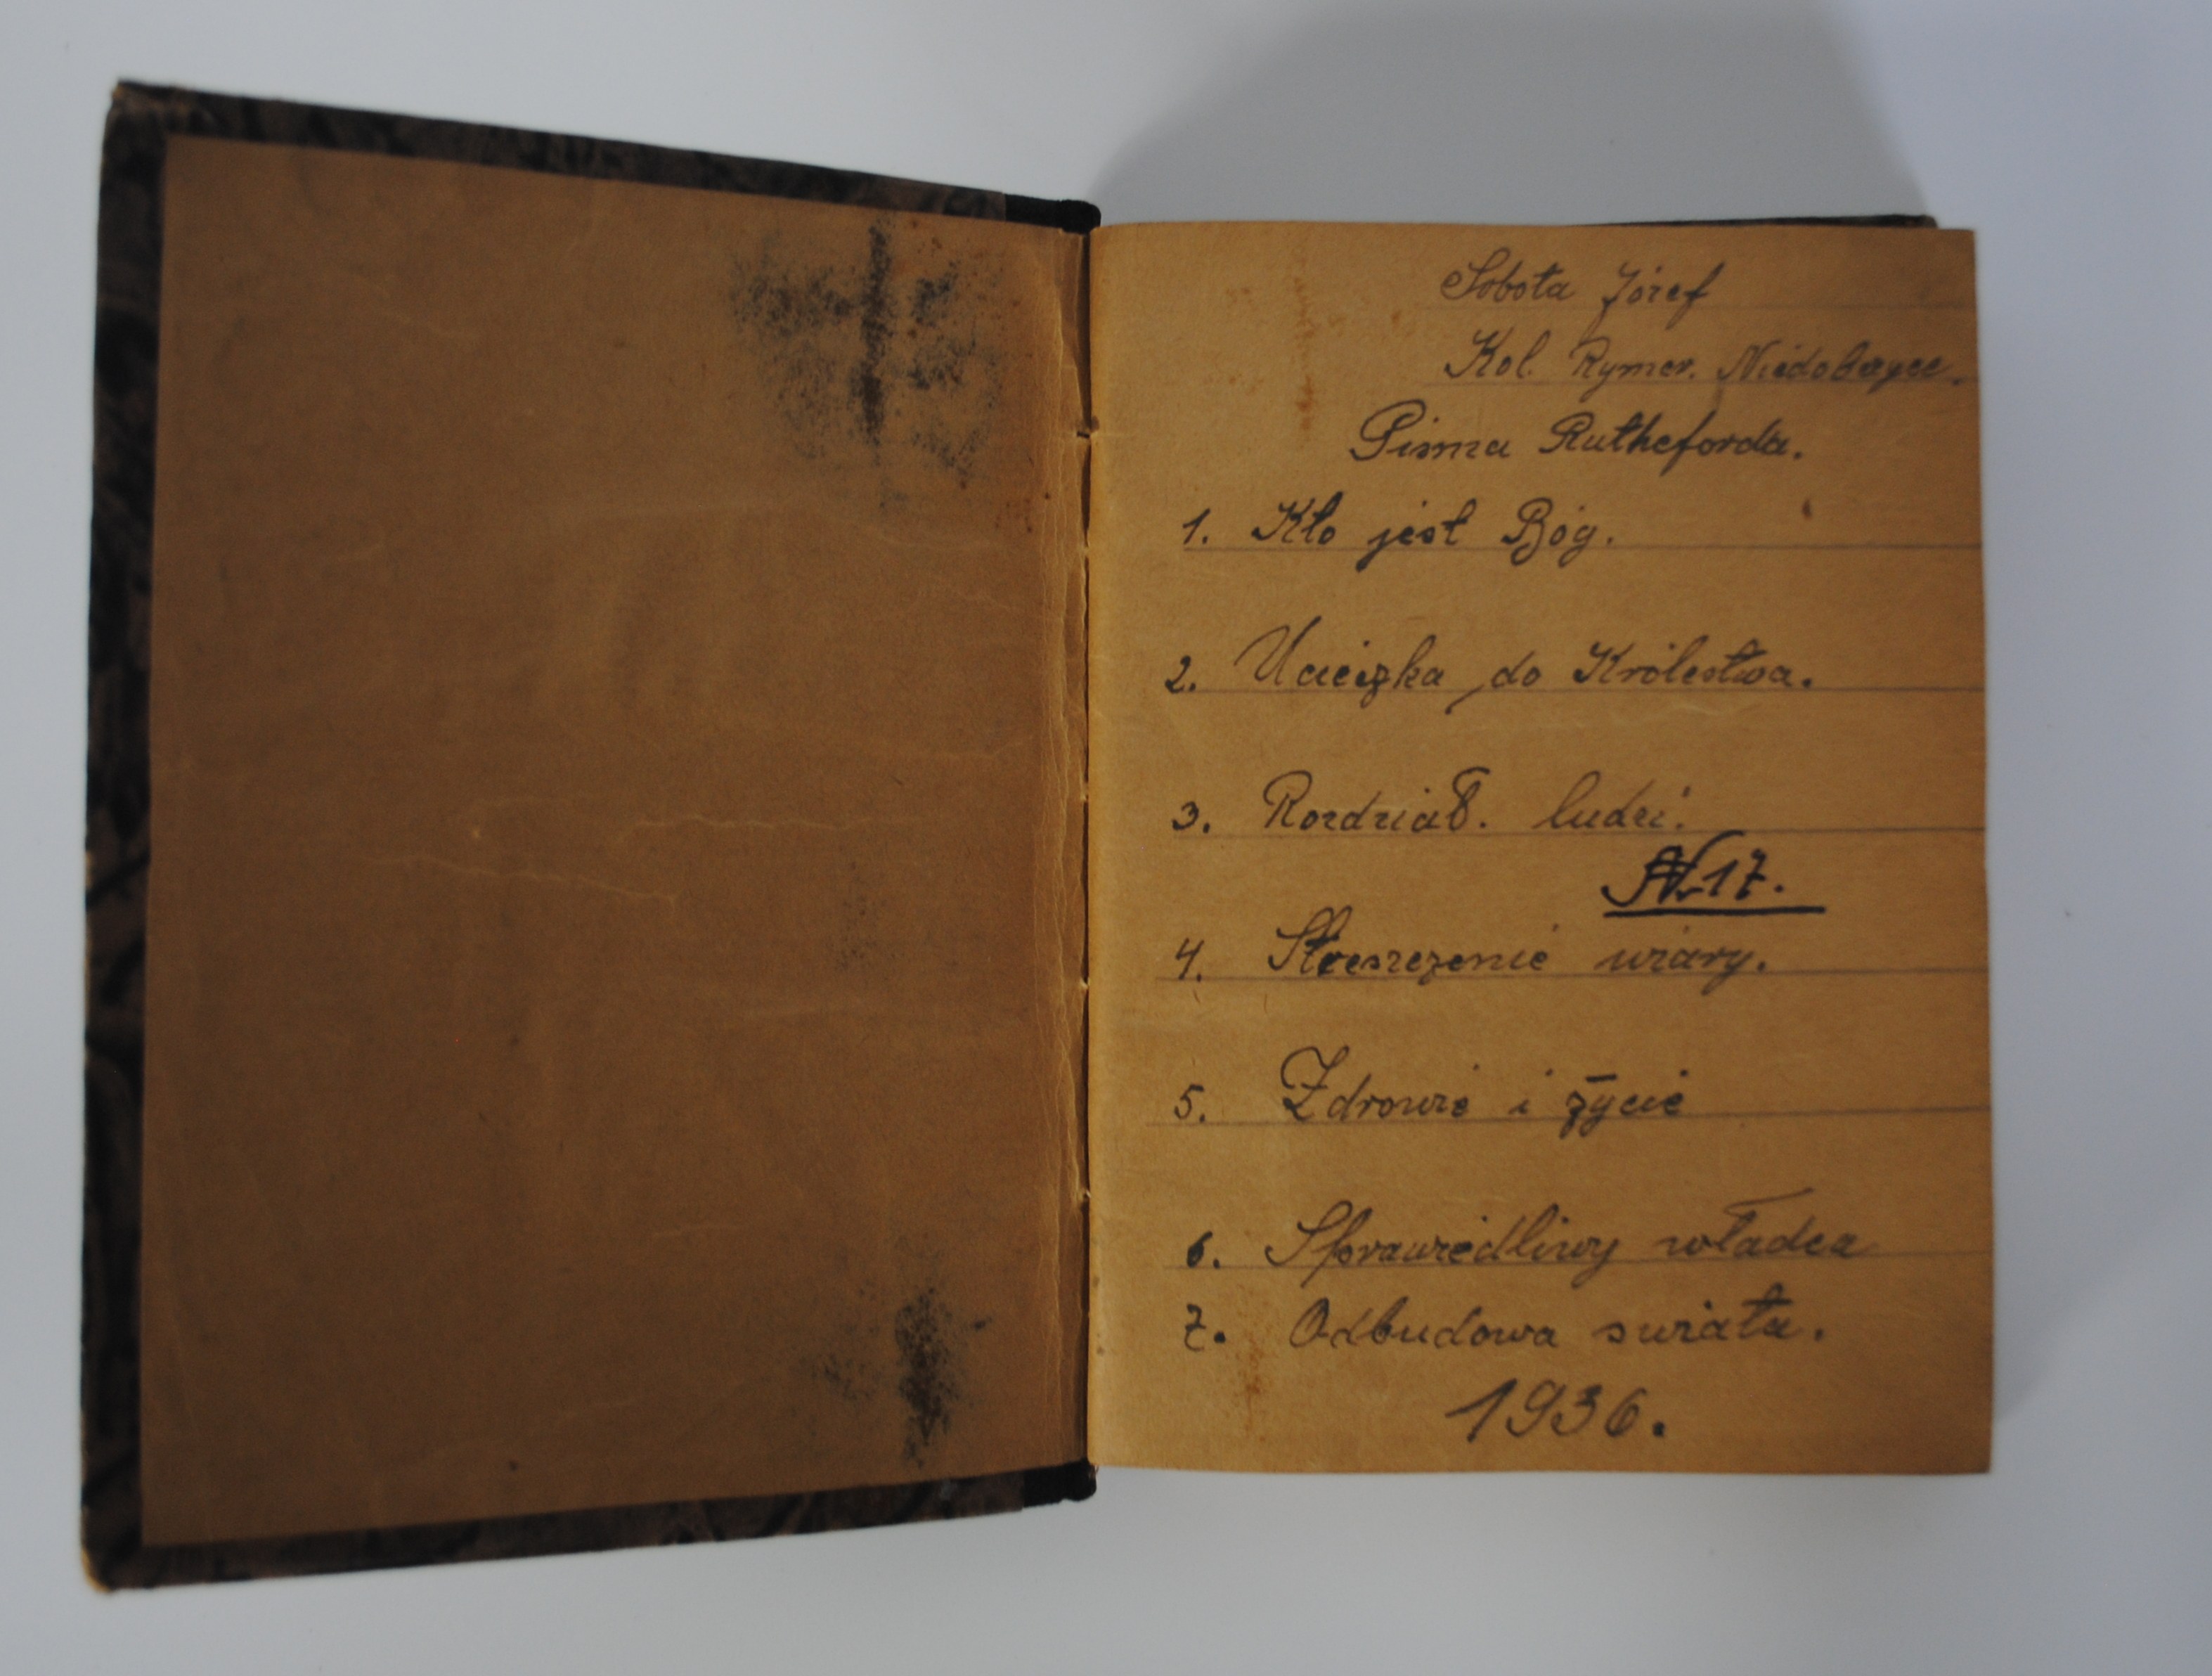 Sobota Józef
Kol. Rymer. Niedobczyce.
Pisma Rutheforda.
1. Kto jest Bóg.
2. Ucieczka do Królestwa.
3. Rozdział. ludzi.
Nr 17.
4. Streszczenie wiary.
5. Zdrowie i życie
6. Sprawiedliwy władca
7. Odbudowa swiata.
1936.